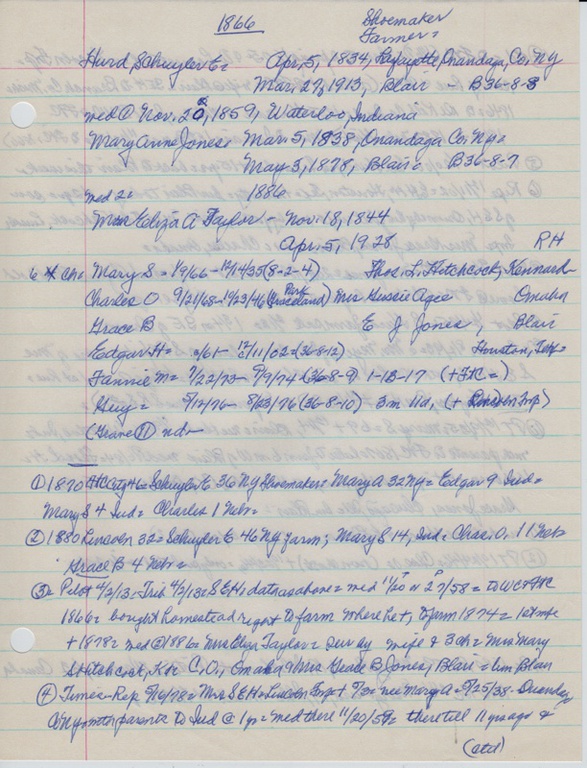 1866
Shoemaker
Farmer=
Hurd, Schuyler E= Apr. 5, 1834, Lafayette, Onandaga, Co, Ny
Mar, 27, 1913, Blair - B36-8-8
med @ Nov. 20, 1859, Waterloo, Indiana
Mary Anne Jones= Mar. 5, 1838, Onandaga Co, Ny=
May 3, 1878, Blair= B36-8-7
med 2= 1886
Mrs Eliza A Taylor - Nov. 18, 1844
Apr. 5, 1928 RH
6 Ch= Mary S - 1/9/66 - (8-2-4) Thos. L. Hitchcock, Kennard
Charles O 9/21/68 - (Park Graceland) Mrs Gussie Agee Omaha
Grace B E J Jones, Blair
Edgar H= /61 - 12/11/02 = (36-8-12) Houston, Tex=
Fannie M= 7/22/73 - 9/9/74 (36-8-9) 1-13-17 (+ FtC=)
Guy = 5/12/76 - 8/23/76 (36-8-10) 3m 11d, (+ Lincoln Twp)
(Grave 11) nd
① 1870 FtC City 46= Schuyler E 36 Ny Shoemaker= Mary A 32 Ny= Edgar 9 Ind=
Mary S 4 Ind= Charles 1 Neb=
② 1880 Lincoln 32= Schuyler E 46 Ny farm; Mary S 14, Ind= Chas. O. 11 Neb
Grace B 4 Neb=
③ Pilot 4/2/13= Trib 4/3/13= S E H= data as above= med 11/20 58= to WC + FtC
1866= bought homestead right to farm where he +, to farm 1874= 1st wife
+ 1878= med @ 1886 Mrs Eliza Taylor= surv by wife & 3 ch= Mrs Mary
S Hitchcock, K= C, O, Omaha & Mrs Grace B Jones, Blair= bur Blair
④ Times-Rep 5/16/78= Mrs S E H= Lincoln Twp + 5/3= nee Mary A= 5/25/38- Onandaga
Co Ny= with parents to Ind @ 1 yr= med there 11/20/59= there till 11 yrs ago &
(ctd)